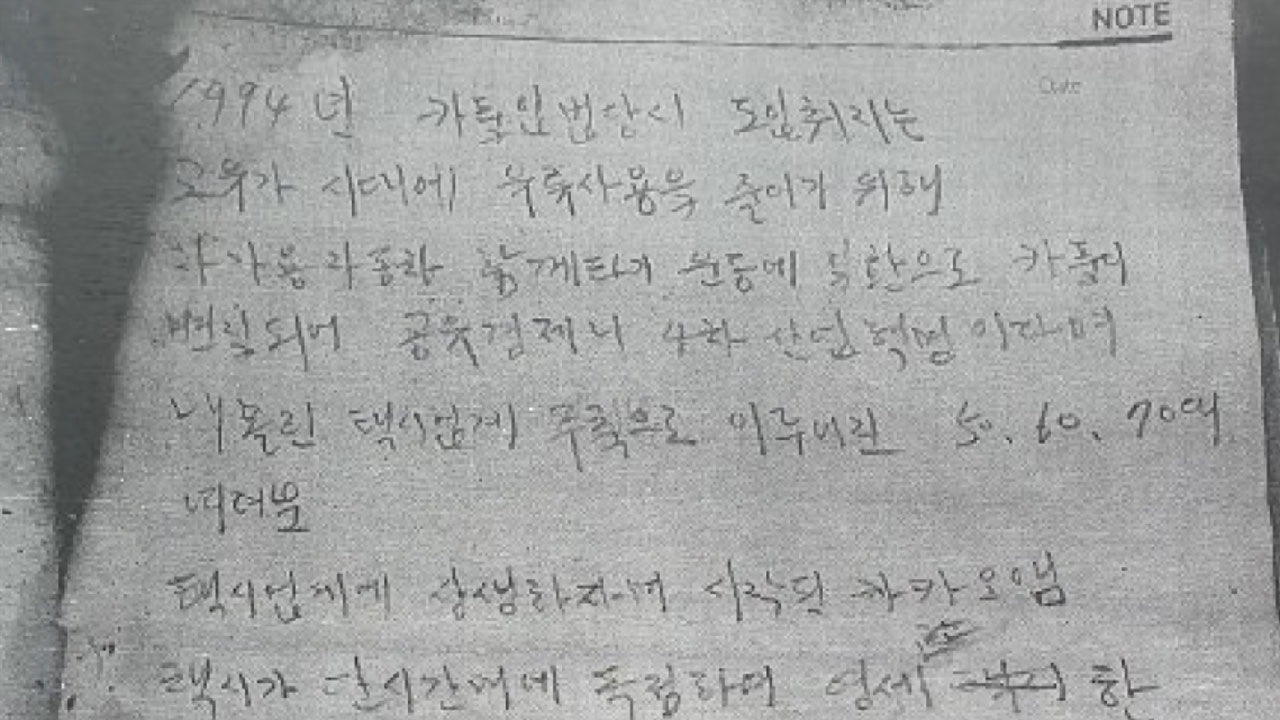 NOTE
Date
1994년 카풀입법당시 도입취지는
고유가 시대에 유류사용을 줄이기 위해
자가용자동차 함께타기 운동에 일환으로 카풀이
변질되어 공유경제니 4차 산업혁명이라며
내몰린 택시업계 주축으로 이루어진 50. 60. 70여
택시업계에 상생하자며 시작된 카카오앱
택시가 단시간내에 독점하여 영세한